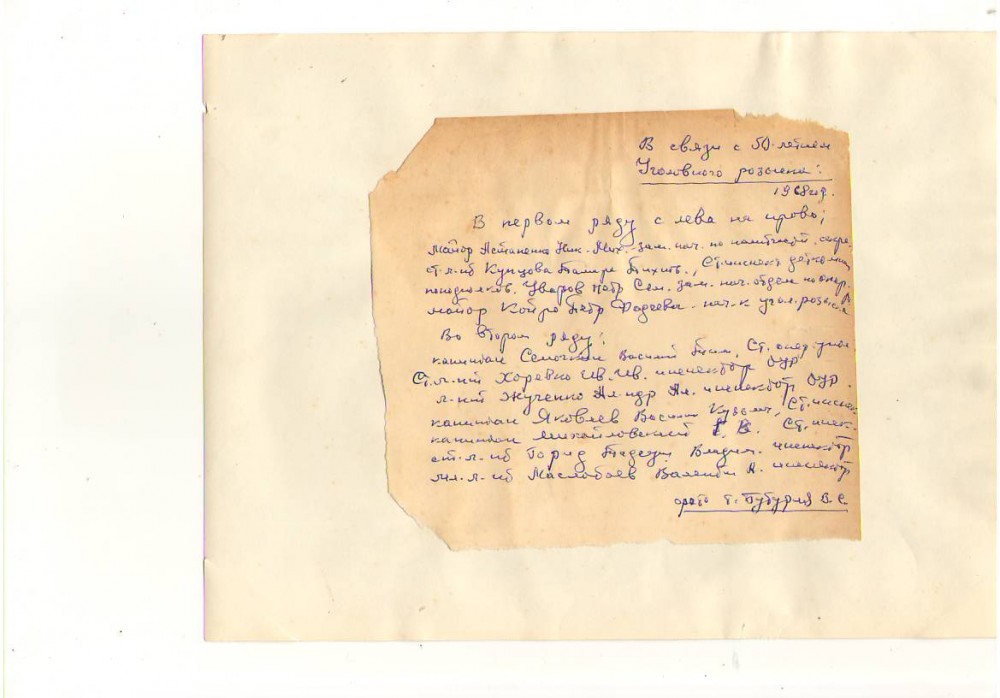 В связи с 50-летием
Уголовного розыска:
1968 г.
В первом ряду с лева на право;
майор Астапенко Ник. Мих. зам. нач. по
ст. л-нт Купцова Тамара Тихит., Ст. инспект
подполков. Уваров Петр Сем. зам. нач. отдел
майор Койро Петр Фадеевич нач-к угол. розыск
Во втором ряду:
капитан Семочкин Василий Ст. опер
Ст. л-нт Хоревко Ив. Ив. инспектор ОУР
л-нт Жученко Ал-ндр Ал. инспектор ОУР.
капитан Яковлев Василий Кузьм., Ст. инспек
капитан Михайловский Г. В. Ст. инсп.
ст. л-нт Горид Владим. инспектор
мл. л-нт Маслобоев Валентин А. инспектор
фото т. Бутурля В. С